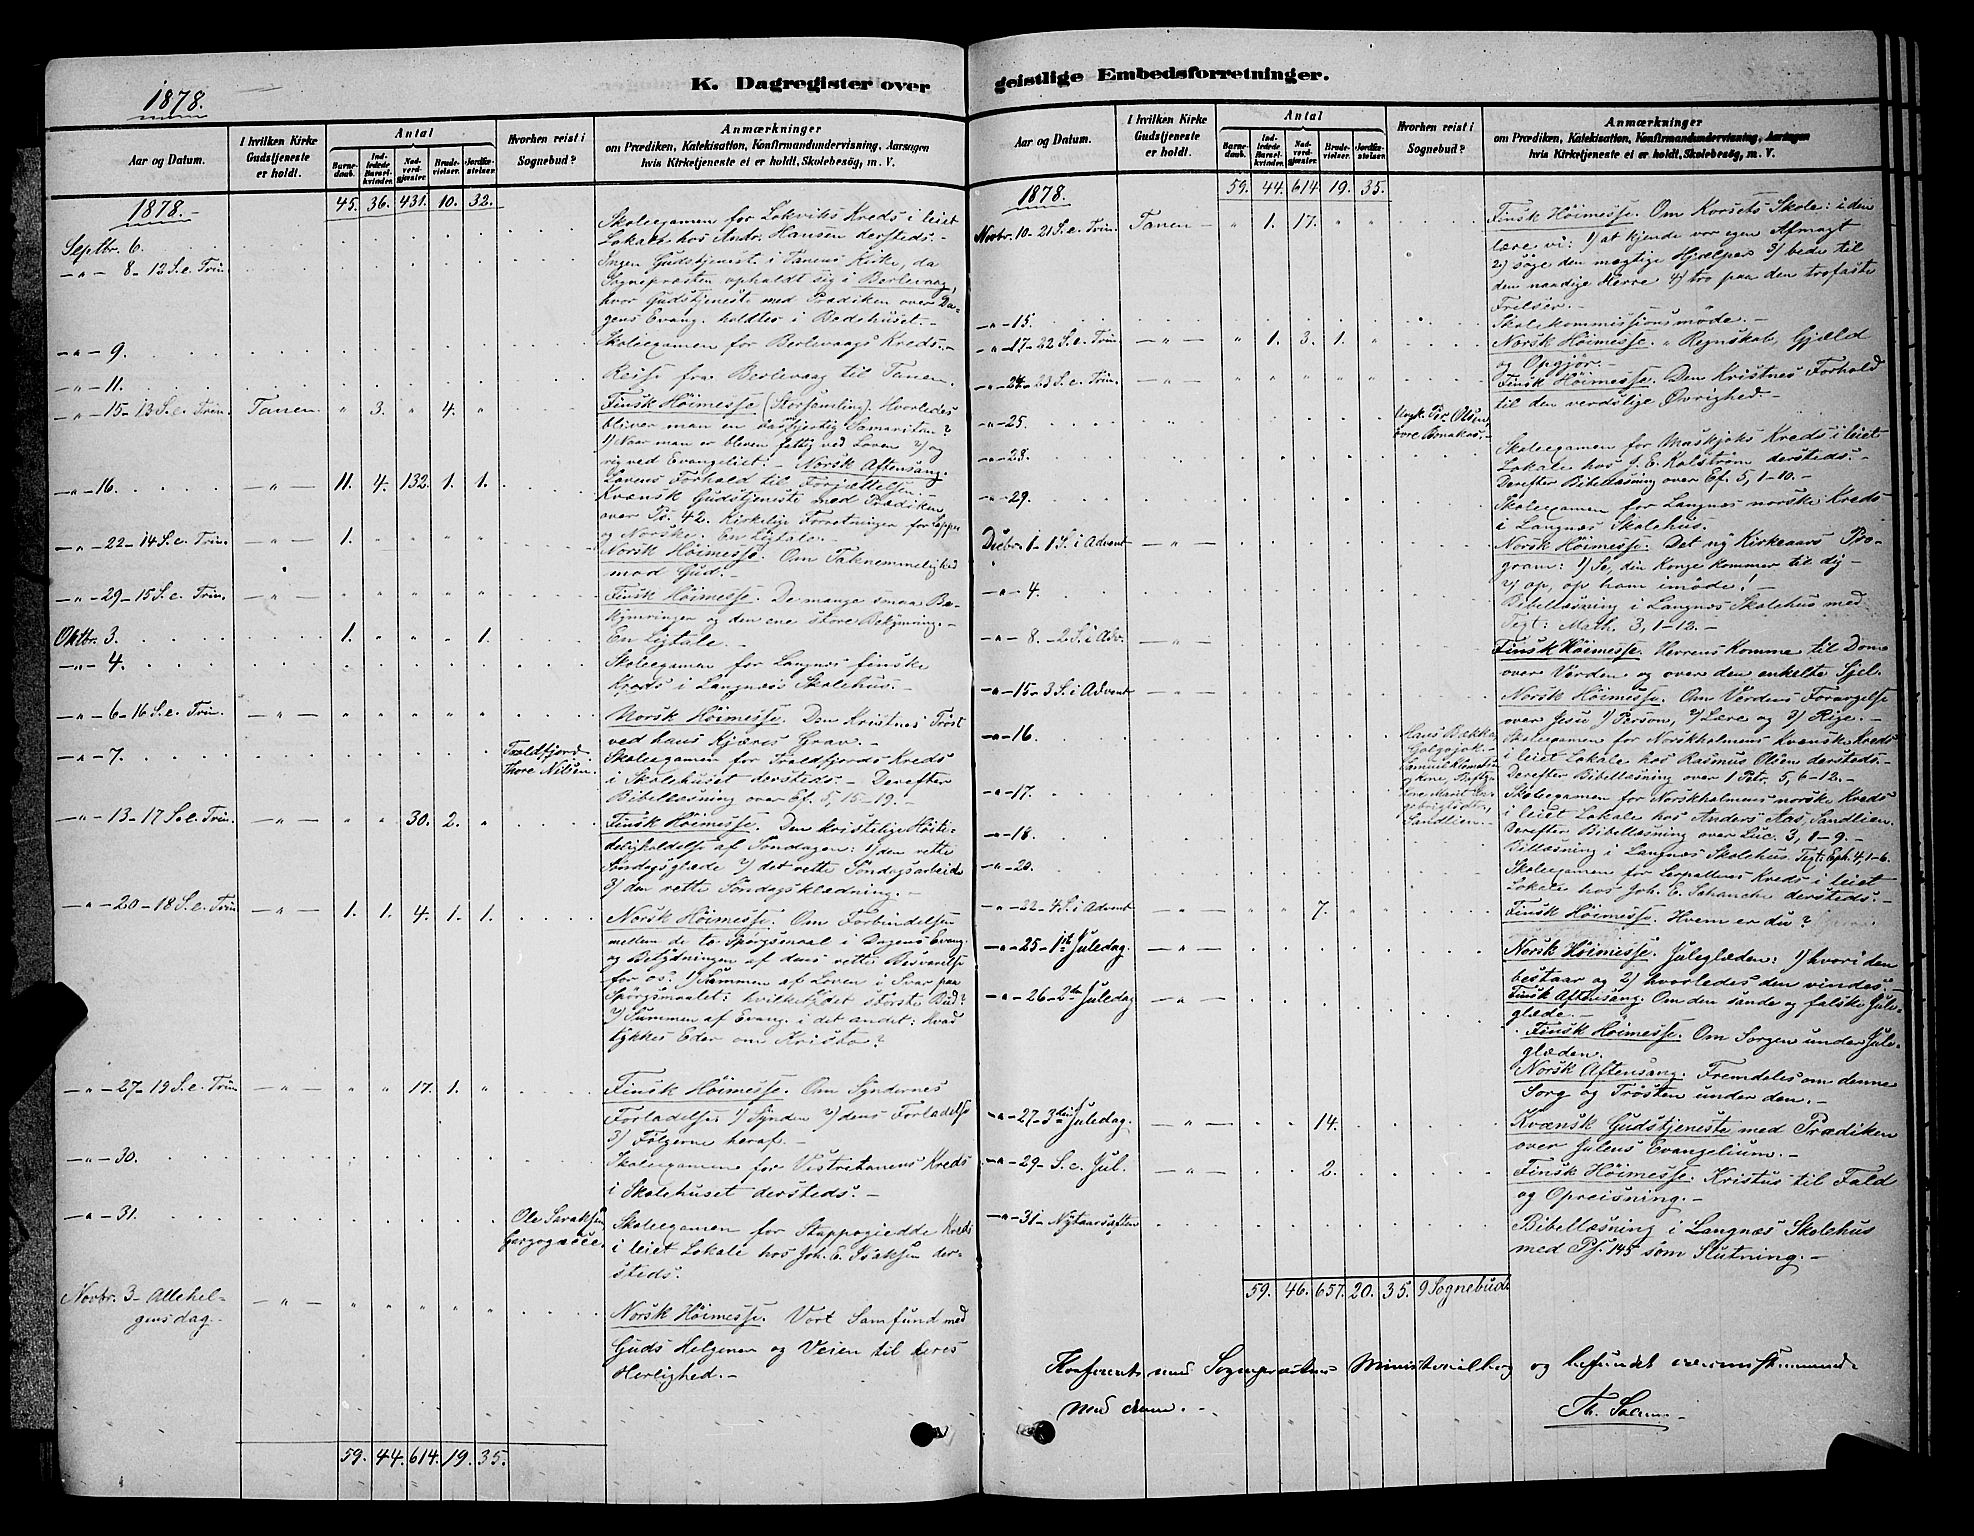 K. Dagregister over
1878.
Aar og Datum.
I hvilken Kirke Gudstjeneste er holdt.
Antal
Barnedaab.
Indledede Barselkvinder.
Nadverdgjæster.
Brudevielser.
Jordfæstelser.
Hvorhen reist i Sognebud?
Anmærkninger
om Prædiken, Katekisation, Konfirmandundervisning, Aarsagen
hvis Kirketjeneste ei er holdt, Skolebesög, m. V.
1878.-
45. 36. 431. 10. 32.
Septbr. 6.
Skoleexamen for Lokviks Kreds i leiet
Lokale hos Andr. Hansen dersteds.-
-„- 8- 12 S.e. Trin.
Ingen Gudstjeneste i Tanens Kirke, da
Sognepræsten opholdt sig i Berlevaag,
hvor Gudstjeneste med Prædiken over Da-
gens Evang. holdtes i Bedehuset.-
-„- 9.
Skoleexamen for Berlevaags Kreds.-
-„- 11.
Reise fra Berlevaag til Tanen.
-„- 15- 13 S.e. Trin. Tanen „ 3. „ 4. „
Finsk Höimesse (Storsamling). Hvorledes
bliver man en barmhjertig Samaritan?
1) Naar man er bleven fattig ved Loven 2) og
rig ved Evangeliet.- Norsk Aftensang.
-„- 16. -„- 11. 4. 132. 1. 1.
Lovens Forhold til Forjættelsen.-
Kvænsk Gudstjeneste med Prædiken
over Ps. 42. Kirkelige Forretninger for Lapper
og Norske. En Ligtale.-
-„- 22- 14 S.e. Trin. -„- 1. „ „ „ „
Norsk Höimesse. Om Taknemmelighed
mod Gud.-
-„- 29- 15 S.e. Trin. -„- „ „ „ „ „
Finsk Höimesse. De mange smaa Be-
kymringer og den ene store Bekymring.-
Oktbr. 3. 1. „ „ „ 1.
En Ligtale.-
-„- 4.
Skoleexamen for Langnæs finske
Kreds i Langnæs Skolehus.-
-„- 6- 16 S.e. Trin. -„- „ „ „ „ „
Norsk Höimesse. Den Kristnes Tröst
ved hans Kjæres Grav.-
-„- 7. Traldfjord.
Thore Nilsen.
Skoleexamen for Traldfjords Kreds
i Skolehuset dersteds.- Derefter
Bibellæsning over Ef. 5, 15-19.-
-„- 13- 17 S.e. Trin. -„- „ „ 30. 2. „
Finsk Höimesse. Den kristelige Höiti-
deligholdelse af Söndagen: 1) den rette
Söndagsglæde 2) det rette Söndagsarbeide
3) den rette Söndagsklædning.-
-„- 20- 18 S.e. Trin -„- 1. 1. 4. 1. 1.
Norsk Höimesse. Om Forbindelsen
mellem de to Spörgsmaal i Dagens Evang.
og Betydningen af dens rette Besvarelse
for os: 1) Summen af Loven i Svar paa
Spörgsmaalet: hvilket er det störste Bud?
2) Summen af Evang. i det andet: Hvad
tykkes Eder om Kristo?
-„- 27- 19 S.e. Trin -„- „ „ 17. 1. „
Finsk Höimesse. Om Syndernes
Forladelse: 1) Synden 2) dens Forladelse
3) Fölgerne heraf.-
-„- 30.
Skoleexamen for Vestretanens Kreds
i Skolehuset dersteds.-
-„- 31. Ole Saraksen
Skoleexamen for Stappogiedde Kreds
i leiet Lokale hos Joh. E. Isaksen der-
steds.
Novbr. 3- Allehel-
gensdag.- -„- „ „ „ „ „
Norsk Höimesse. Vort Samfund med
Guds Helgener og Veien til deres
Herlighed.-
59. 44. 614. 19. 35.
geistlige Embedsforretninger.
Aar og Datum.
I hvilken Kirke Gudstjeneste er holdt.
Antal
Barnedaab.
Indledede Barselkvinder.
Nadverdgjæster.
Brudevielser.
Jordfæstelser.
Hvorhen reist i Sognebud?
Anmærkninger
om Prædiken, Katekisation, Konfirmandundervisning, Aarsagen
hvis Kirketjeneste ei er holdt, Skolebesög, m. V.
1878.
59. 44. 614. 19. 35.
Novbr. 10- 21 S.e. Trin. Tanen- „ 1. 17. „ „
Finsk Höimesse. Om Korsets Skole: i den
lære vi: 1) at kjende vor egen Afmagt
2) söge den mægtige Hjælper 3) bede til
den naadige Herre 4) tro paa den trofaste
Frelser.-
-„- 15.
Skolekommissionsmöde.-
-„- 17- 22 S.e. Trin -„- „ 1. 3. 1. „
Norsk Höimesse. „ Regnskab, Gjæld
og Opgjör.-
-„- 24- 23 S.e. Trin. -„- „ „ „ „ „
Finsk Höimesse. Den Kristnes Forhold
til den verdslige Övrighed.-
-„- 25. Ungk. Per Olsen,
övre Bonakas.-
-„- 28.
Skoleexamen for Maskjoks Kreds i leiet
Lokale hos J. E. Kolström dersteds.-
Derefter Bibellæsning over Ef. 5, 1-10.-
-„- 29.
Skoleexamen for Langnæs norske Kreds
i Langnæs Skolehus.
Decbr. 1- 1 S. i Advent -„-
Norsk Höimesse. Det ny Kirkeaars Pro-
gram: 1) Se, din Konge kommer til dig-
2) op, op ham imöde!-
-„- 4.
Bibellæsning i Langnæs Skolehus med
Text: Math. 3, 1-12.-
-„- 8.- 2 S. i Adv. -„-
Finsk Höimesse. Herrens Komme til Dom
over Verden og over den enkelte Sjel.
-„- 15- 3 S. i Advent -„-
Norsk Höimesse. Om Verdens Forargelse
over Jesu 1) Person, 2) Lære og 3) Rige.-
-„- 16. Hans Bakka
Skoleexamen for Norskholmens Kvænske Kreds
i leiet Lokale hos Rasmus Olsen dersteds.-
Derefter Bibellæsning over 1 Petr. 5, 6-12.-
-„- 17.
Sandlien.-
Skoleexamen for Norskholmens norske Kreds
i leiet Lokale hos Anders Aas, Sandlien.
Derefter Bibellæsning over Luc. 3, 1-9.-
-„- 18.
Bibllæsning i Langnæs Skolehus. Text: Eph. 4, 1-6.
-„- 20.
Skoleexamen for Leirpollens Kreds i leiet
Lokale hos Joh. E. Schanche dersteds.-
-„- 22- 4 S. i Advent -„- 7.
Finsk Höimesse. Hvem er du?
-„- 25- 1ste Juledag. -„-
Norsk Höimesse. Juleglæden: 1) hvori den
bestaar og 2) hvorledes den vindes.
Finsk Aftensang. Om den sande og falske Jule-
glæde.-
-„- 26- 2den Juledag -„-
Finsk Höimesse. Om Sorgen under Jule-
glæden.
Norsk Aftensang. Fremdeles om denne
Sorg og Trösten under den.-
-„- 27- 3die Juledag. -„- 14.
Kvænsk Gudstjeneste med Prædiken
over Julens Evangelium.-
-„- 29- S.e. Jul. -„- 2.
Finsk Höimesse: Kristus til Fald
og Opreisning.-
-„- 31- Nytaarsaften
Bibellæsning i Langnæs Skolehus
med Ps. 145 som Slutning.-
59. 46. 657. 20. 35. 9 Sognebude
Konfereret med Sognepræstens Ministerialbog og befundet overensstemmende
med denne.-